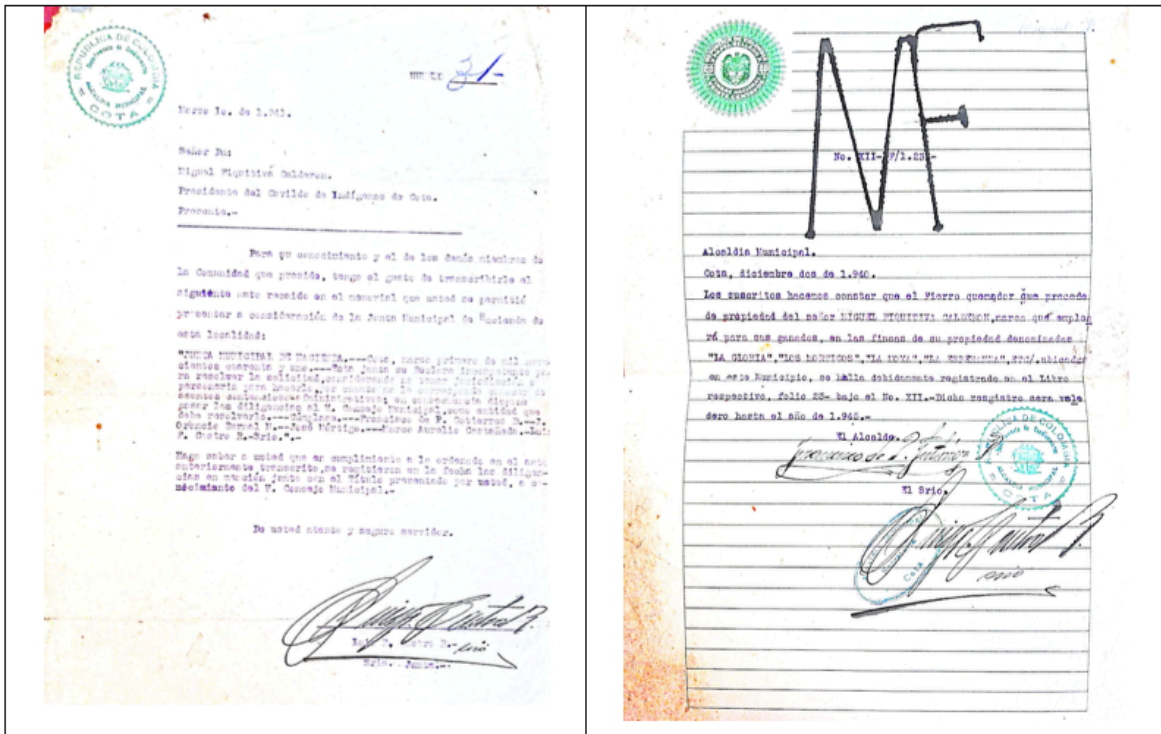 REPUBLICA DE COLOMBIA
COTA
31-
Marzo 1o. de 1.941.
Señor Don
Miguel Fiquitiva Calderon.
Presidente del Cavildo de Indígenas de Cota.
Presente.-
Para su conocimiento y el de los demás miembros de
la Comunidad que preside, tengo el gusto de transcribirle el
siguiente auto recaido en el memorial que usted se permitió
presentar a consideración de la Junta Municipal de Hacienda de
esta localidad:
"JUNTA MUNICIPAL DE HACIENDA.---Cota, marzo primero de mil nove
cientos cuarenta y uno.---Esta Junta se declara incompetente pa
ra resolver la solicitud, considerando no tener jurisdicción
pasar las diligencias al H. Concejo Municipal, como entidad que
debe resolverlo.---Francisco de P. Gutierrez
Marco Aurelio Castañeda.-Luis
F. Castro R.-Srio.".-
Hago saber a usted que en cumplimiento a lo ordenado en el auto
anteriormente transcrito, se remitieron en la fecha las diligen-
cias en mención junto con el Título presentado por usted, a co-
nocimiento del H. Concejo Municipal.-
De usted atento y seguro servidor.
Luis F. Castro R.-
Srio. Junta.-
MF
No. XII-
Alcaldia Municipal.
Cota, diciembre dos de 1.940.
Los suscritos hacemos constar que el Fierro quemador que precede
de propiedad del señor MIGUEL FIQUITIVA CALDERON, marca que emplea
rá para sus ganados, en las fincas de su propiedad denominadas
"LA GLORIA", "LA ESPERANZA", ETC/. ubicadas
en este Municipio, se halla debidamente registrado en el Libro
respectivo, folio 23- bajo el No. XII.-Dicho rengistro sera vale
dero hasta el año de 1.945.-
El Alcalde.
REPUBLICA DE COLOMBIA
COTA
El Srio.
Cota